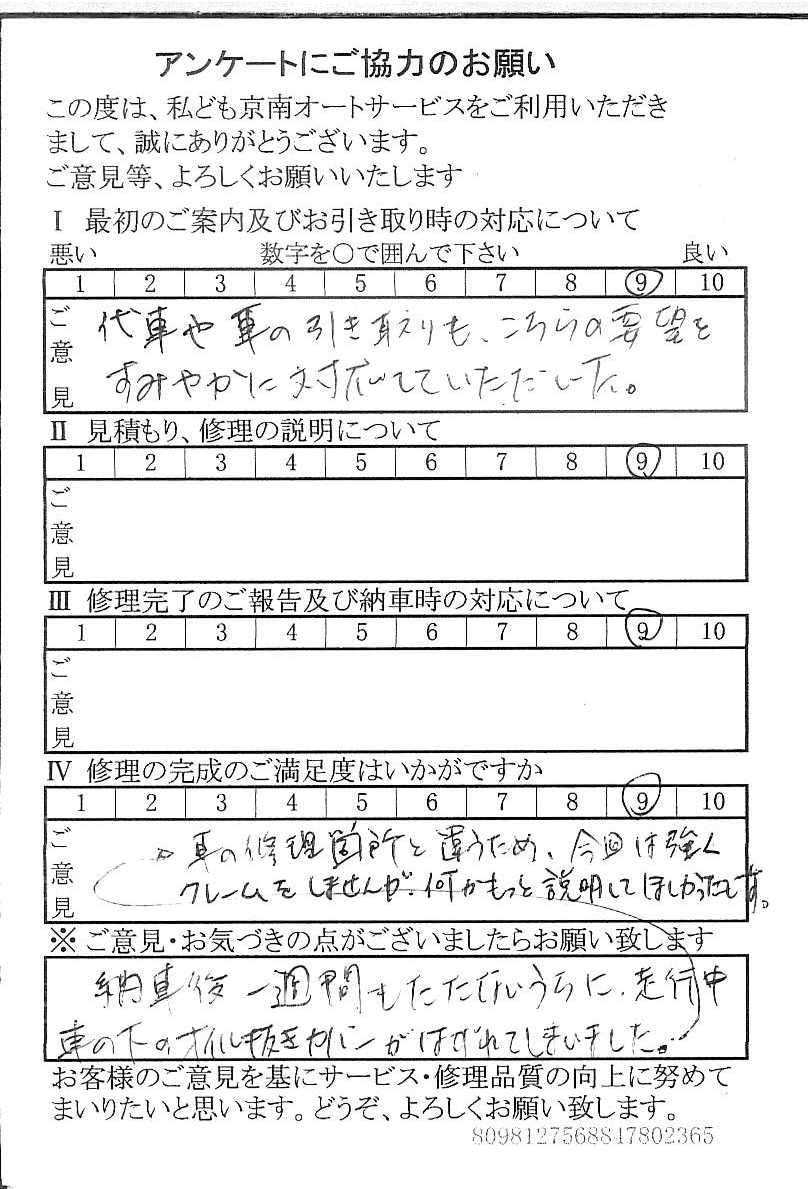 アンケートにご協力のお願い
この度は、私ども京南オートサービスをご利用いただき
まして、誠にありがとうございます。
ご意見等、よろしくお願いいたします
Ⅰ 最初のご案内及びお引き取り時の対応について
悪い 数字を○で囲んで下さい 良い
1 2 3 4 5 6 7 8 9 10
ご意見
代車や車の引き取りも、こちらの要望を
すみやかに対応していただいた。
Ⅱ 見積もり、修理の説明について
1 2 3 4 5 6 7 8 9 10
ご意見
Ⅲ 修理完了のご報告及び納車時の対応について
1 2 3 4 5 6 7 8 9 10
ご意見
Ⅳ 修理の完成のご満足度はいかがですか
1 2 3 4 5 6 7 8 9 10
ご意見
車の修理箇所と違うため、今回は強く
クレームをしませんが、何かもっと説明してほしかったです。
※ ご意見・お気づきの点がございましたらお願い致します
納車後一週間もたたないうちに、走行中
車の下のオイル抜きカバーがはずれてしまいました。
お客様のご意見を基にサービス・修理品質の向上に努めて
まいりたいと思います。どうぞ、よろしくお願い致します。
8098127568847802365